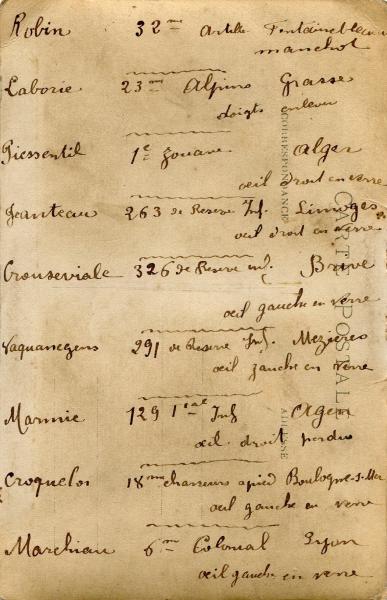 Robin 32me Artille Fontainebleau
manchot
Laborie 23me Alpins Grasse
doigts enlevés
Piessentil 1e Zouave Alger
œil droit en verre
Jeanteau 263 de Reserve Inf. Limoges
œil droit en verre
Crouseviale 326 de Reserve inf. Brive
œil gauche en verre
Vaquanegens 291 de Reserve Inf. Mezières
œil gauche en verre
Marmie 129 Inf Agen
œil droit perdu
Croquelos 18me chasseurs a pied Boulogne-s-Mer
œil gauche en verre
Marchiau 6me Colonial Lyon
œil gauche en verre
CARTE POSTALE
CORRESPONDANCE
ADRESSE